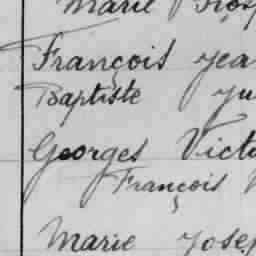 Marie Prosp
François Jea
Baptiste Ju
Georges Victo
François
Marie Josep